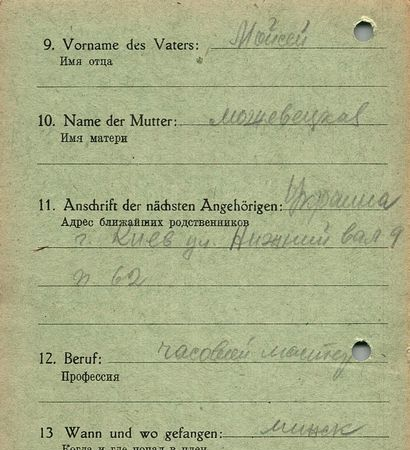 9. Vorname des Vaters: Мойсей
Имя отца
10. Name der Mutter: можевецкая
Имя матери
11. Anschrift der nächsten Angehörigen: Украина
Адрес ближайших родственников
г. Киев ул. Нижний вал 9
п 62
12. Beruf: часовой мастер
Профессия
13 Wann und wo gefangen: минск
Когда и где попал в плен